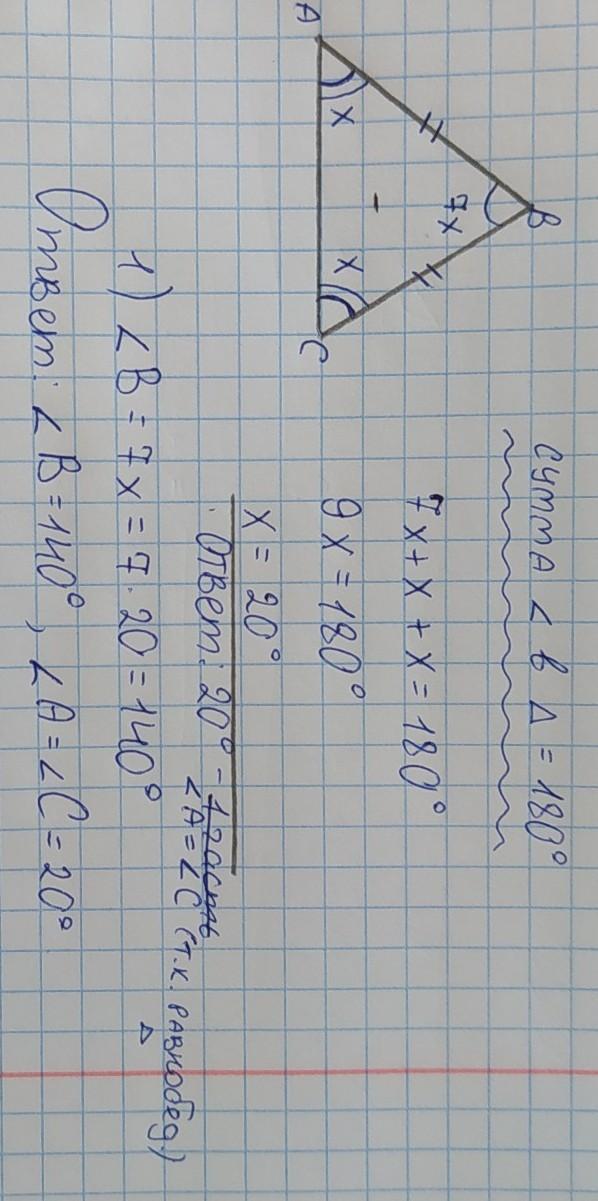 A
B
C
7x
x
x
сумма ∠ в Δ = 180°
7x + x + x = 180°
9x = 180°
x = 20°
Ответ: 20° - 1 часть
∠A = ∠C (т.к. равнобед.)
Δ
1) ∠B = 7x = 7 · 20 = 140°
Ответ: ∠B = 140°, ∠A = ∠C = 20°